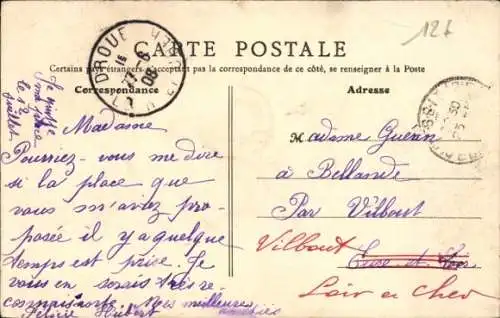 12f
CARTE POSTALE
Certains pays étrangers n'acceptant pas la correspondance de ce côté, se renseigner à la Poste
Correspondance
Adresse
DROUÉ
08
Je quitte
ma place
le 12
Juillet
Madame
Pourriez-vous me dire
si la place que
vous m'aviez pro-
posée il y a quelque
temps est prise. Je
vous en serais très re-
connaissante. Mes meilleures
amitiés
Félicie Hubert
Madame Guérin
à Bellande
Par Vilbout
Vilbout Eure et Loir
Loir et Cher